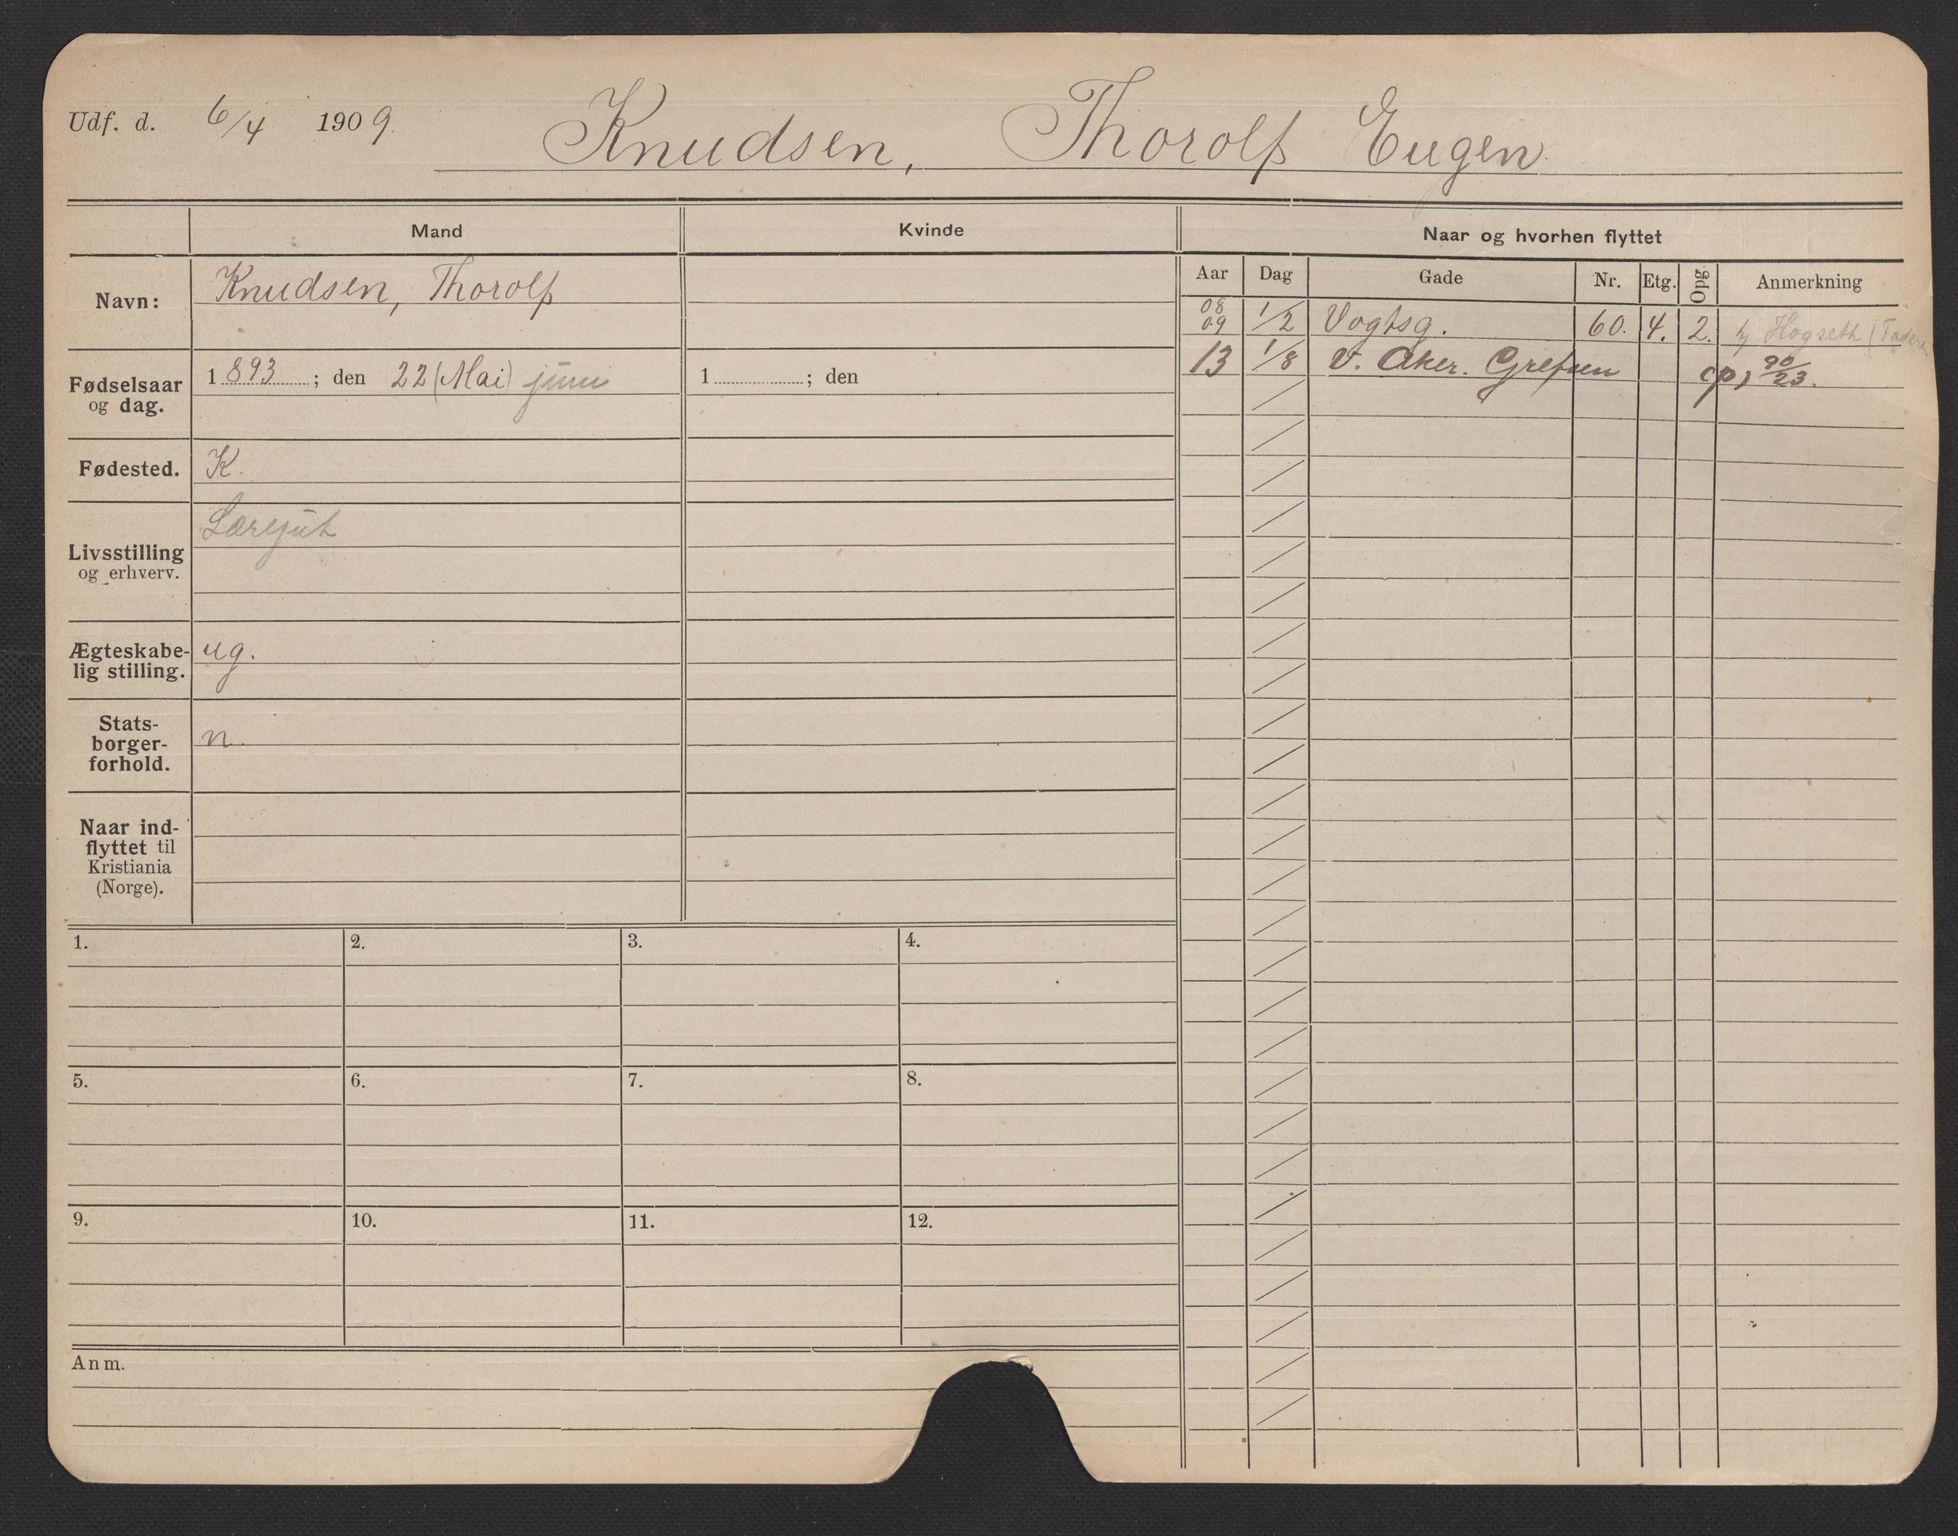 Udf. d. 6/4 1909 Knudsen, Thorolf Eugen
Mand Kvinde Naar og hvorhen flyttet
Aar Dag Gade Nr. Etg. Opg Anmerkning
Navn: Knudsen, Thorolf
08
09 1/2 Vogtsg. 60. 4. 2. Hogseth
13 1/8 V. Aker. Grefsen (p) 90/23.
Fødselsaar
og dag. 1893 ; den 22 (Mai) juni 1 ; den
Fødested. K.
Livsstilling
og erhverv. Læregut
Ægteskabe-
lig stilling. ug.
Stats-
borger-
forhold. n.
Naar ind-
flyttet til
Kristiania
(Norge).
1. 2. 3. 4.
5. 6. 7. 8.
9. 10. 11. 12.
Anm.